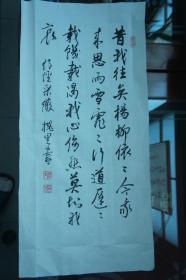 昔我往矣楊柳依〻今我
來思雨雪霏〻行道遲〻
載渴載飢我心傷悲莫知我
哀 詩經采薇